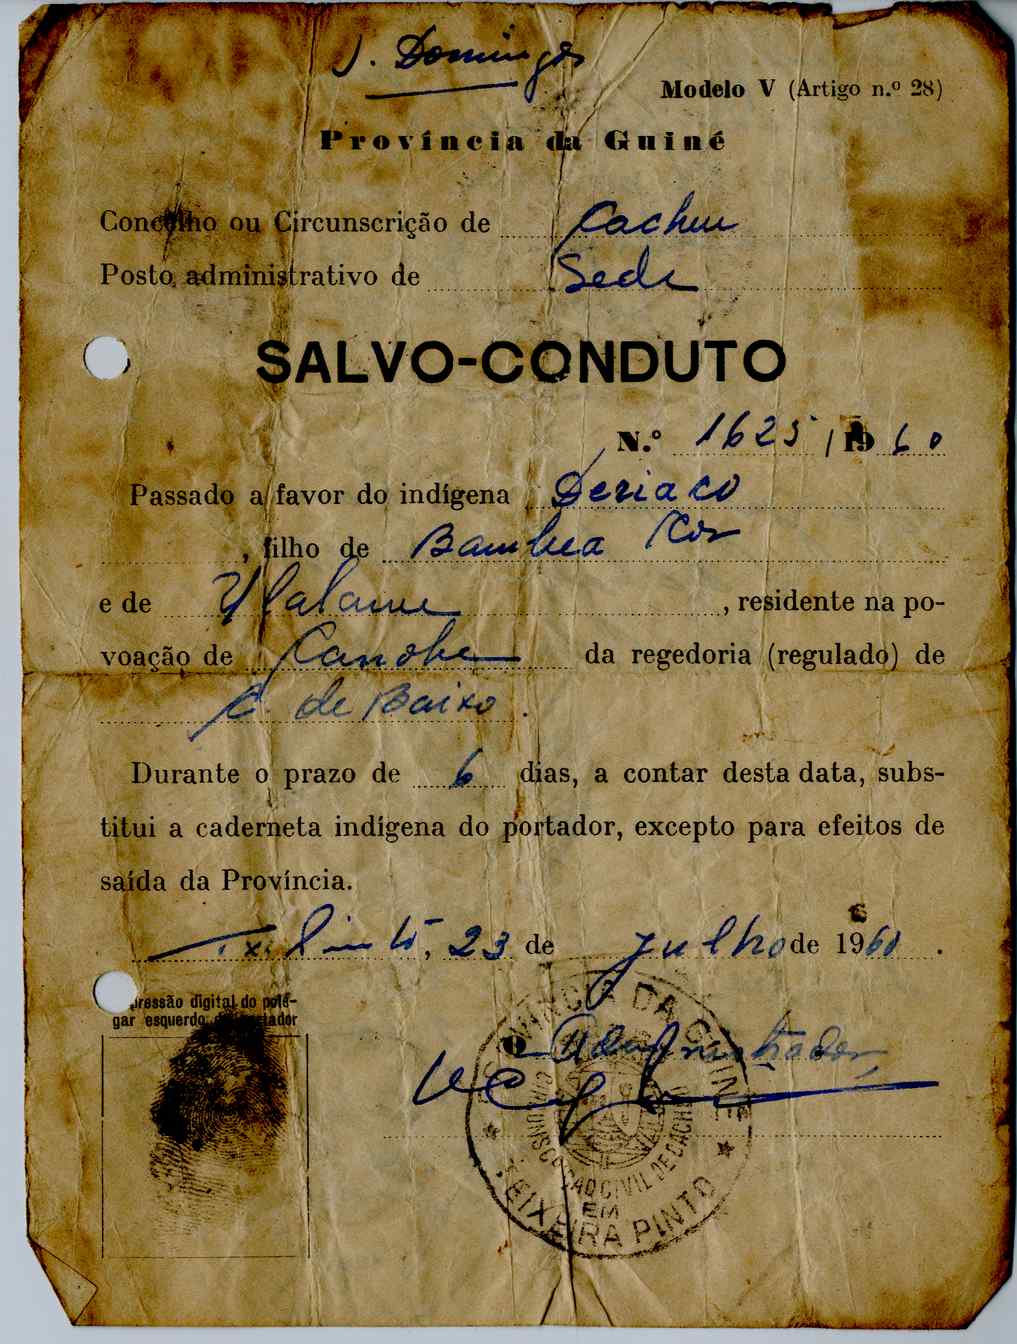 Domingos
Modelo V (Artigo n.º 28)
Província da Guiné
Concelho ou Circunscrição de Cacheu
Posto administrativo de Sede
SALVO-CONDUTO
N.º 1625 / 1960
Passado a favor do indígena Deriaco
, filho de Bambea
e de , residente na po-
voação de Canobe da regedoria (regulado) de
C. de Baixo.
Durante o prazo de 6 dias, a contar desta data, subs-
titui a caderneta indígena do portador, excepto para efeitos de
saída da Província.
Tx. Pinto, 23 de Julho de 1960.
pressão digital do pole-
gar esquerdo do portador
O Administrador
PROVÍNCIA DA GUINÉ
CIRCUNSCRIÇÃO CIVIL DE CACHEU
EM
TEIXEIRA PINTO